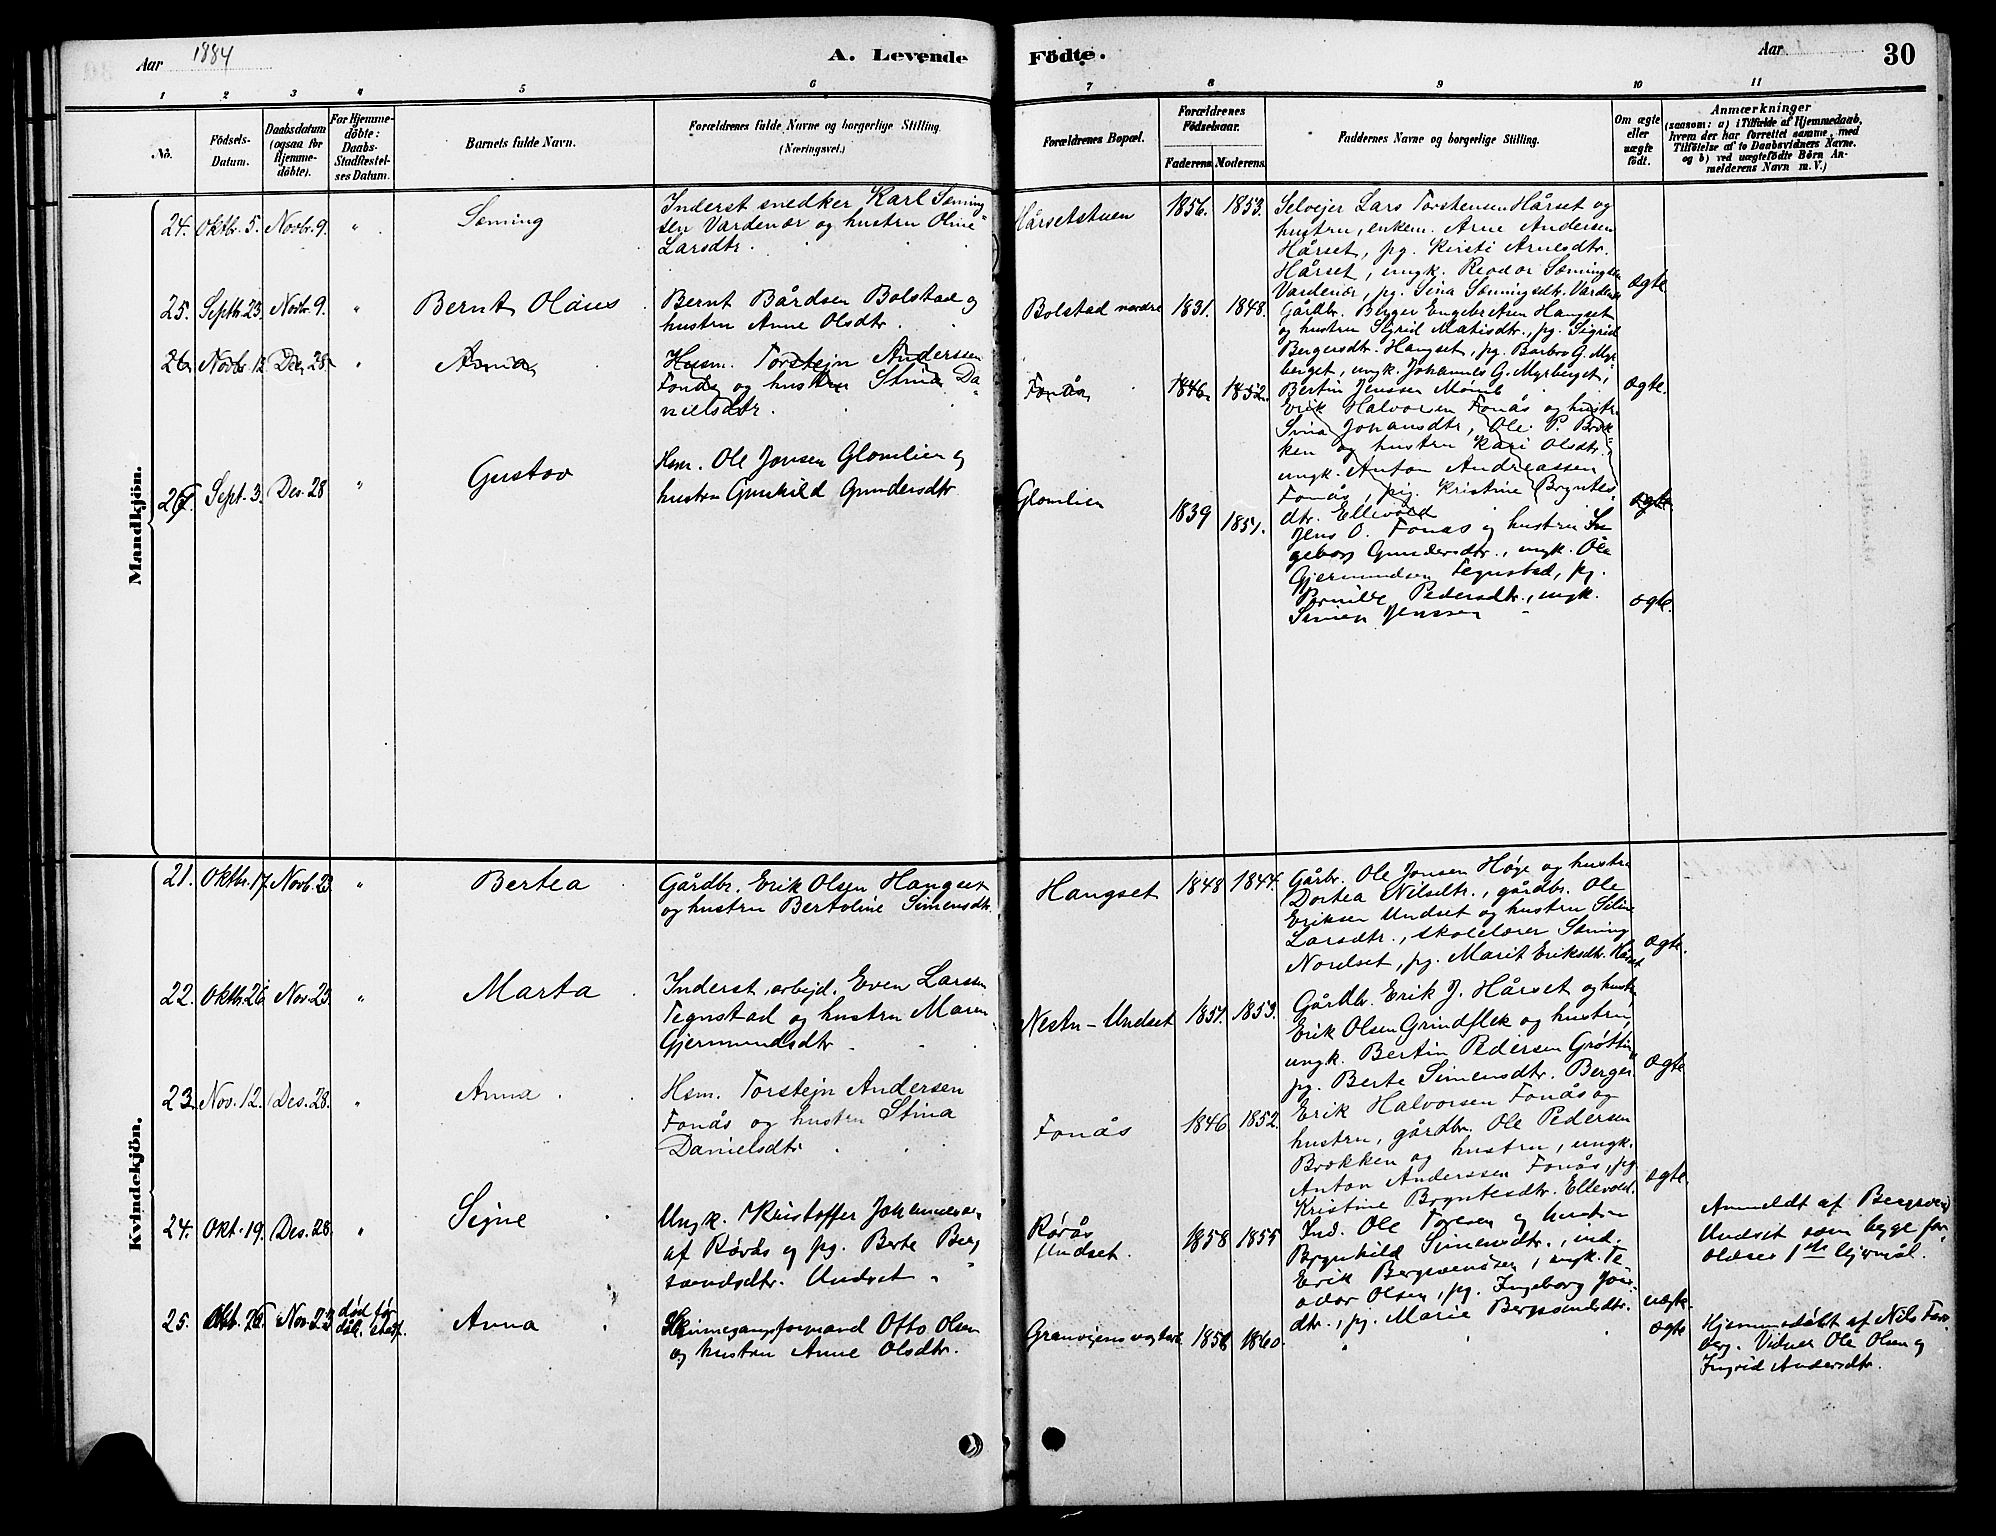 Aar 1884
A. Levende
Födte.
Aar
30
1 2 3 4 5 6 7 8 9 10 11
No.
Födsels-
Datum.
Daabsdatum
(ogsaa for
Hjemme-
döbte).
For Hjemme-
döbte:
Daabs-
Stadfæstel-
ses Datum.
Barnets fulde Navn.
Forældrenes fulde Navne og borgerlige Stilling.
(Næringsvei.)
Forældrenes Bopæl.
Forældrenes
Födselsaar.
Faderens. Moderens.
Faddernes Navne og borgerlige Stilling.
Om ægte
eller
uægte
födt.
Anmærkninger
(saasom: a) i Tilfælde af Hjemmedaab,
hvem der har forrettet samme, med
Tilföielse af to Daabsvidners Navne.
og b) ved uægtefödte Börn An-
melderens Navn m. V.)
Mandkjön.
24. Oktbr. 5. Novbr. 9. "
Sæming
Inderst snedker Karl Sæming-
sen Vardenær og hustru Oline
Larsdtr.
Hårsetstuen
1856. 1853.
Selvejer Lars Torstensen Hårset og
hustru, enkem. Arne Andersen
Hårset, pg. Kirsti Arnesdtr.
Hårset, ungk. Reodor Sæmingsen
Vardenær, pg. Sina Sæmingsdtr. Vardenær
ægte
25. Septbr. 23. Novbr. 9. "
Bernt Olaus
Bernt Bårdsen Bolstad og
hustru Anne Olsdtr.
Bolstad nordre
1831. 1848.
Gårdbr. Berger Engebretsen Hangset
og hustru Sigrid Matisdtr., pg. Sigrid
Bergersdtr. Hangset, pg. Barbro G. Myr-
berget, ungk. Johannes G. Myrberget,
Bertin Jenssen
ægte.
26 Novbr. 12 Des 28 "
Anna
Husm. Torstejn Anderssen
Fonås og hustru Stina Da-
nielsdtr.
Fonås
1846. 1852.
Erik Halvorsen Fonås og hustru
Stina Johansdtr, Ole P. Brok-
ken og hustru Kari Olsdtr.
ungk. Anton Andreassen
Fonås, pig. Kristine Bryntes-
dtr. Ellevold
ægte
26 Sept. 3. Des. 28 "
Gustav
Hsm. Ole Jonsen Glomlien og
hustru Gunhild Gundersdtr
Glomlien
1839 1851.
Jens O. Fonås og hustru In-
geborg Gundersdtr., ungk. Ole
Gjermundsen Tegnstad, pg.
Pernille Pedersdtr., ungk.
Simen Jenssen
ægte.
Kvindekjön.
21. Oktbr. 17. Novb. 23. "
Bertea
Gårdbr. Erik Olsen Hangset
og hustru Bertoline Simensdtr.
Hangset
1848 1844.
Gårbr. Ole Jonsen Høye og hustru
Dortea Nilsdtr., gårdbr. Ole
Eriksen Undset og hustru Seline
Larsdtr., skolelærer Sæming
Nordset, pg. Marit Eriksdtr. Hårset
ægte.
22. Oktbr. 26 Nov. 23. "
Marta
Inderst, arbejd. Even Larssen
Tegnstad og hustru Maren
Gjermundsdtr.
Nestu-Undset
1851. 1853.
Gårdbr. Erik J. Hårset og hustru
Erik Olsen Grindflek og hustru,
ungk. Bertin Pedersen Grøtting
pg. Berte Simensdtr. Berger.
ægte
23. Nov. 12. Des. 28. "
Anna
Hsm. Torstejn Andersen
Fonås og hustru Stina
Danielsdtr
Fonås
1846 1852.
Erik Halvorsen Fonås og
hustru, gårdbr. Ole Pedersen
Brokken og hustru, ungk.
Anton Anderssen Fonås, pg
Kristine Bryntesdtr. Ellevold.
ægte.
24. Okt. 19. Des. 28. "
Signe
Ungk. Kristoffer Johannessen
af Rörås og pg. Berte Berg-
svendsdtr. Undset
Rørås
Undset.
1858 1855
Ind. Ole Toresen og hustru
Brynhild Simensdtr., ind.
Erik Bergsvendsen, ungk. Te-
odor Olsen, pg. Ingeborg Jons-
dtr., pg. Marie Bergsvendsdtr.
uægte.
Anmeldt af Bergsvend
Undset som begge for-
ældres 1ste lejermål.
25. Okt. 26 Nov. 23 død før
dåb. stadf.
Anna
Skinnegangsformand Otto Olsen
og hustru Anne Olsdtr.
1856 1860.
"
ægte
Hjemmedøbt af Nils
Vidner Ole Olsen og
Ingrid Andersdtr.